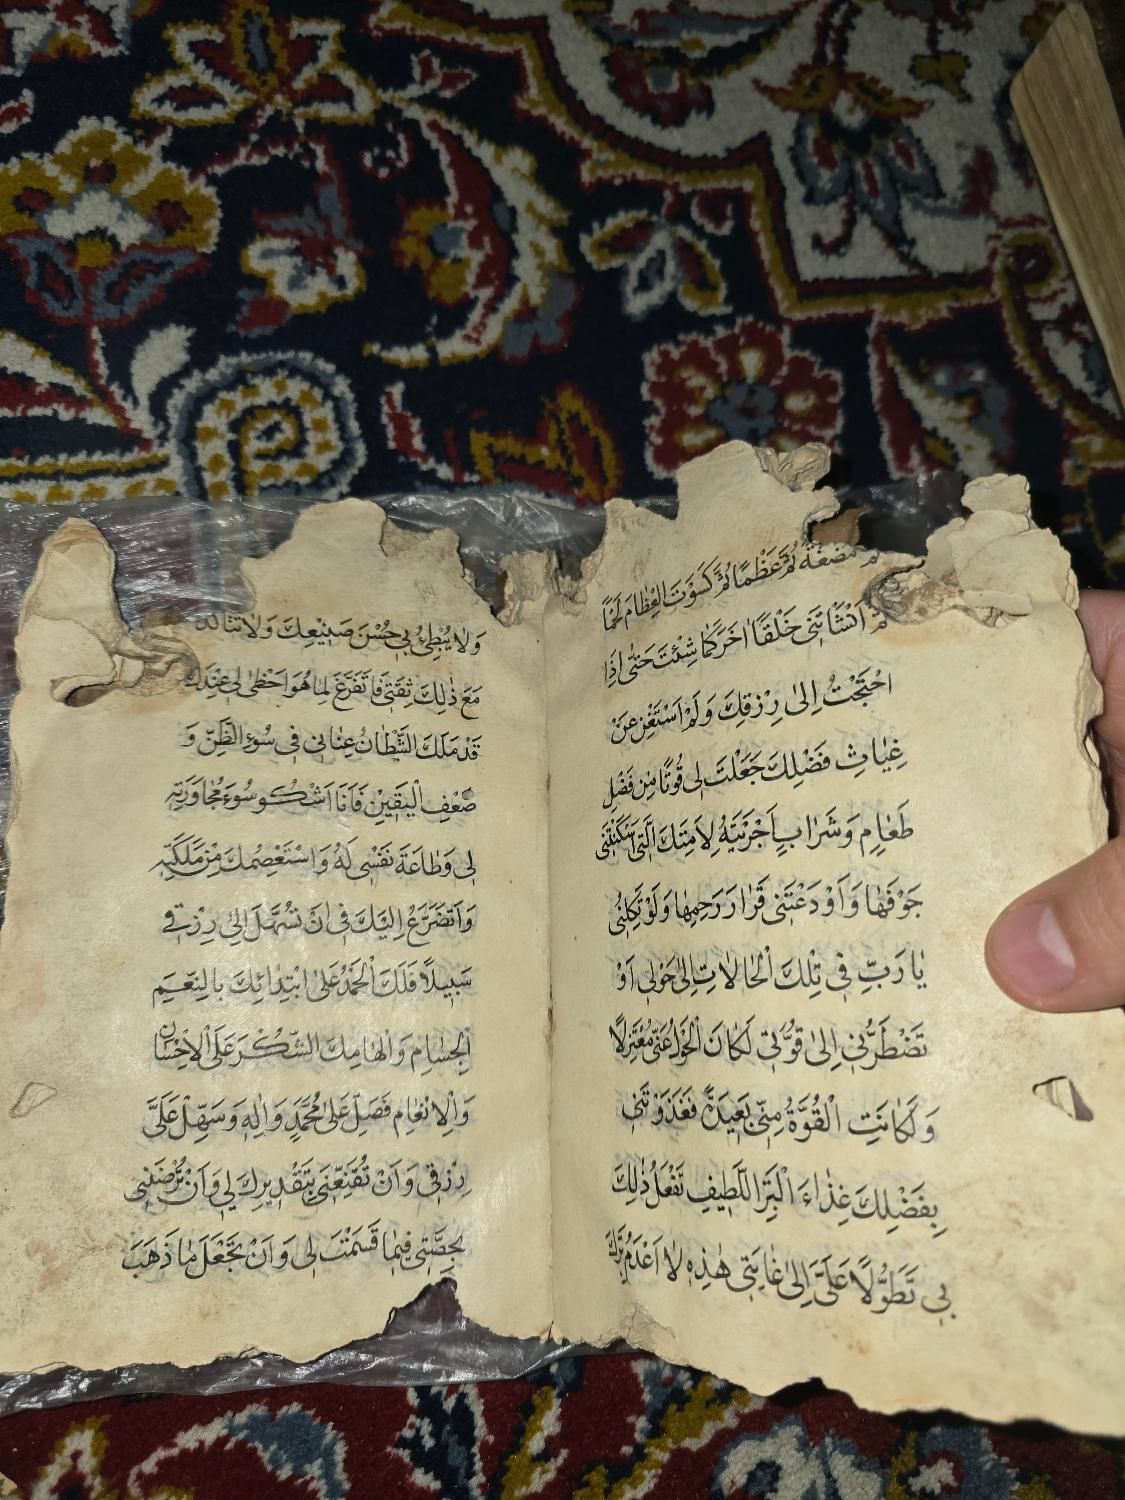 ثُمَّ مُضْغَةً ثُمَّ عَظْمًا ثُمَّ كَسَوْتَ الْعِظَامَ لَحْمًا
ثُمَّ اَنْشَاْتَنِي خَلْقًا اٰخَرَ كَمَا شِئْتَ حَتّٰى اِذَا
احْتَجْتُ اِلٰى رِزْقِكَ وَلَمْ اَسْتَغْنِ عَنْ
غِيَاثِ فَضْلِكَ جَعَلْتَ لِي قُوتًا مِنْ فَضْلِ
طَعَامٍ وَشَرَابٍ اَجْرَيْتَهُ لِاَمَتِكَ الَّتِي اَسْكَنْتَنِي
جَوْفَهَا وَاَوْدَعْتَنِي قَرَارَ رَحِمِهَا وَلَوْ تَكِلْنِي
يَا رَبِّ فِي تِلْكَ الْحَالَاتِ اِلٰى حَوْلِي اَوْ
تَضْطَرُّنِي اِلٰى قُوَّتِي لَكَانَ الْحَوْلُ عَنِّي مُعْتَزِلًا
وَلَكَانَتِ الْقُوَّةُ مِنِّي بَعِيدَةً فَغَذَوْتَنِي
بِفَضْلِكَ غِذَاءَ الْبَرِّ اللَّطِيفِ تَفْعَلُ ذٰلِكَ
بِي تَطَوُّلًا عَلَيَّ اِلٰى غَايَتِي هٰذِهِ لَا اَعْدَمُ بِرَّكَ
وَلَا يُبْطِئُ بِي حُسْنُ صَنِيْعِكَ وَلَا تَتَاَكَّدُ
مَعَ ذٰلِكَ ثِقَتِي فَاَتَفَرَّغَ لِمَا هُوَ اَحْظٰى لِي عِنْدَكَ
قَدْ مَلَكَ الشَّيْطَانُ عِنَانِي فِي سُوْءِ الظَّنِّ وَ
ضَعْفِ الْيَقِيْنِ فَاَنَا اَشْكُو سُوءَ مُجَاوَرَتِهِ
لِي وَطَاعَةَ نَفْسِي لَهُ وَاَسْتَعْصِمُكَ مِنْ مَلَكَتِهِ
وَاَتَضَرَّعُ اِلَيْكَ فِي اَنْ تُسَهِّلَ اِلٰى رِزْقِي
سَبِيلًا فَلَكَ الْحَمْدُ عَلَى ابْتِدَائِكَ بِالنِّعَمِ
الْجِسَامِ وَاِلْهَامِكَ الشُّكْرَ عَلَى الْاِحْسَانِ
وَالْاِنْعَامِ فَصَلِّ عَلٰى مُحَمَّدٍ وَاٰلِهِ وَسَهِّلْ عَلَيَّ
رِزْقِي وَاَنْ تُقَنِّعَنِي بِتَقْدِيرِكَ لِي وَاَنْ تُرْضِيَنِي
بِحِصَّتِي فِيمَا قَسَمْتَ لِي وَاَنْ تَجْعَلَ مَا ذَهَبَ